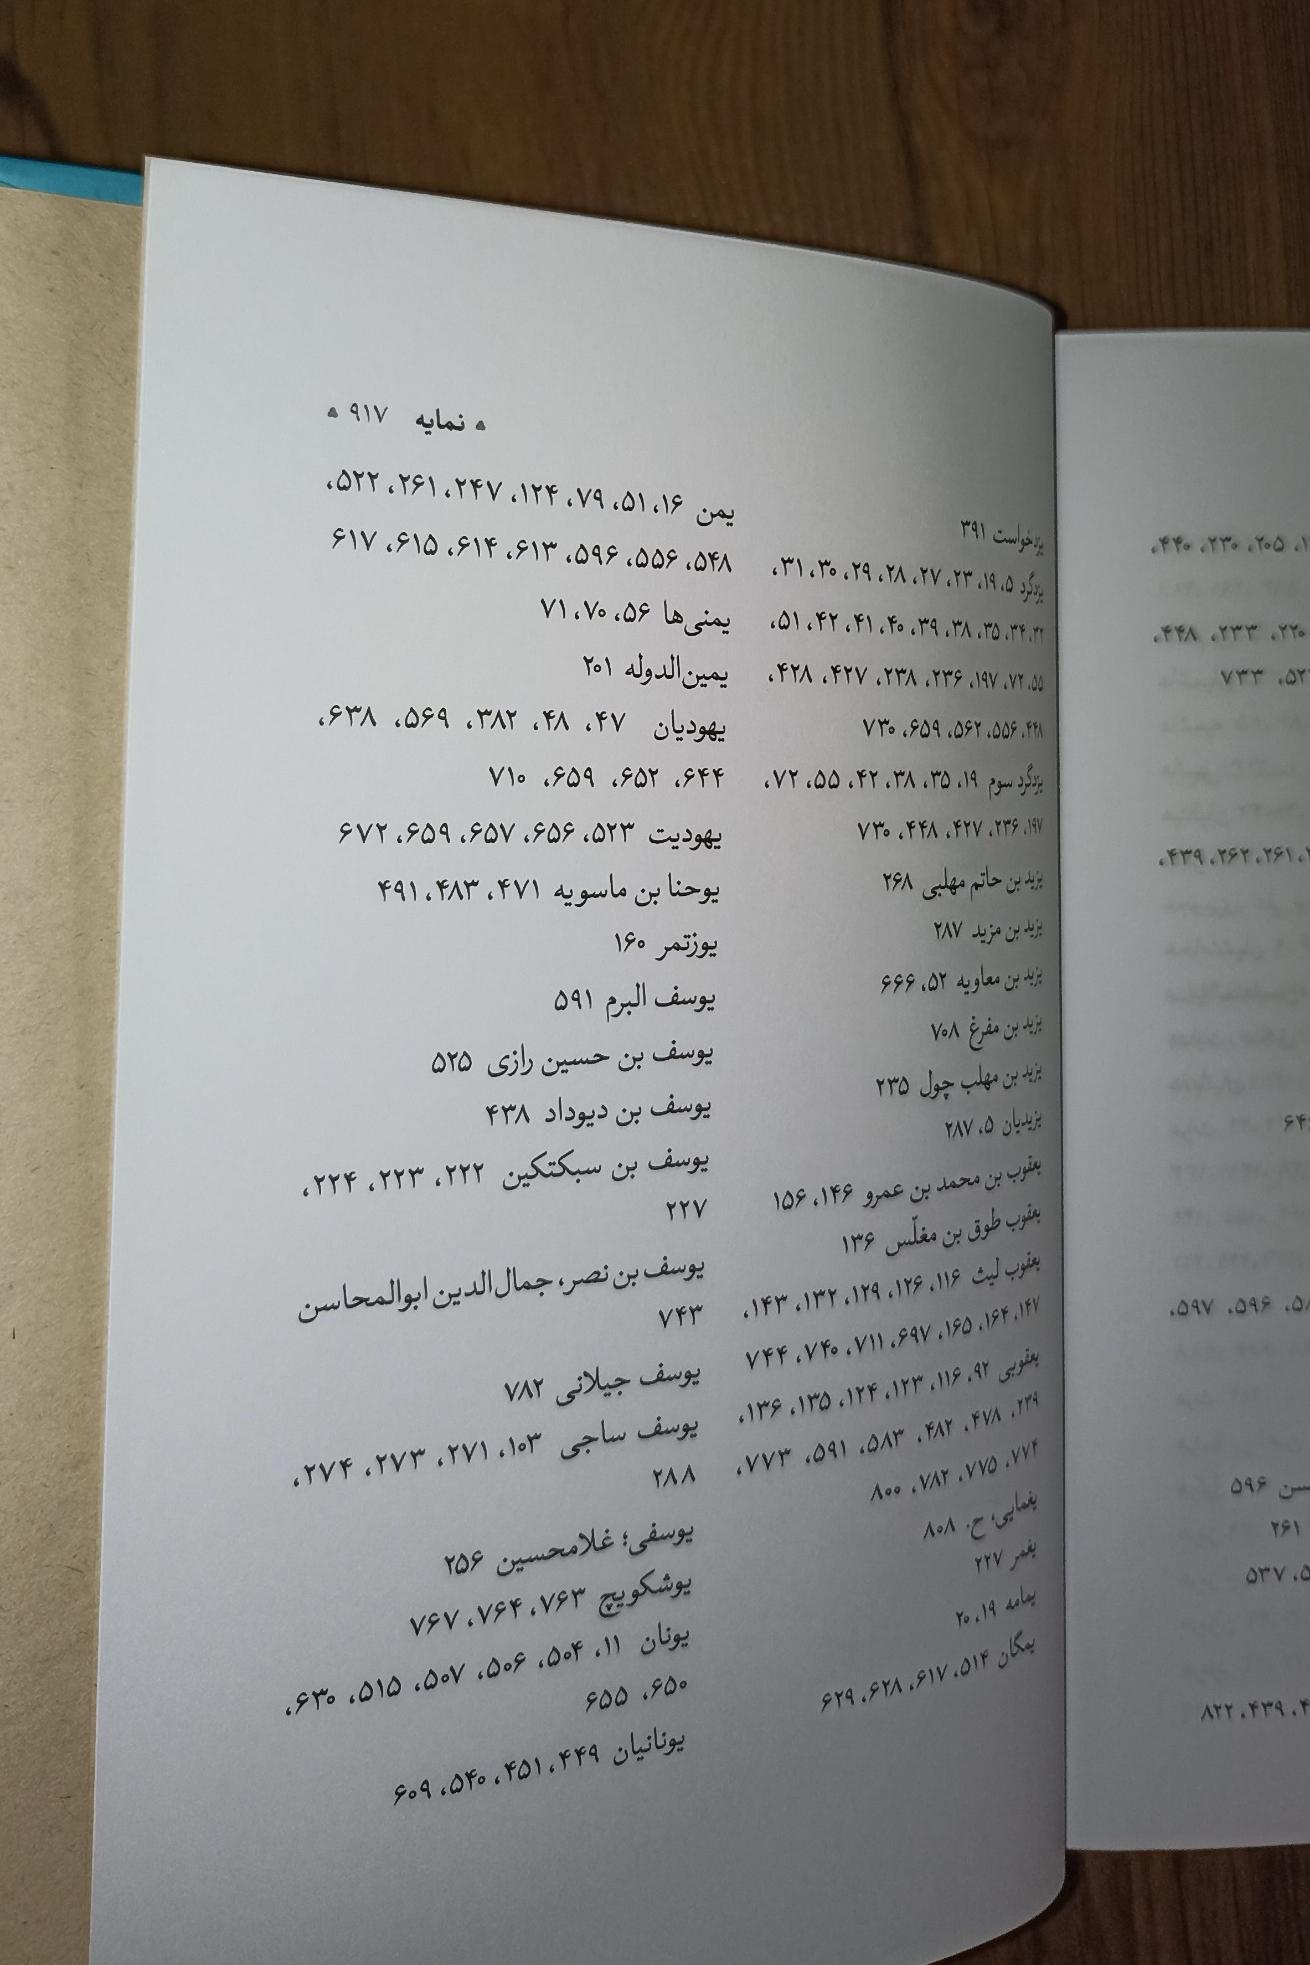 نمایه ۹۱۷
یزدخواست ۳۹۱
یزدگرد ۵، ۱۹، ۲۳، ۲۷، ۲۸، ۲۹، ۳۰، ۳۱،
۳۲، ۳۴، ۳۵، ۳۸، ۳۹، ۴۰، ۴۱، ۴۲، ۵۱،
۵۵، ۷۲، ۱۹۷، ۲۳۶، ۲۳۸، ۴۲۷، ۴۲۸،
۴۴۸، ۵۵۶، ۵۶۲، ۶۵۹، ۷۳۰
یزدگرد سوم ۱۹، ۳۵، ۳۸، ۴۲، ۵۵، ۷۲،
۱۹۷، ۲۳۶، ۴۲۷، ۴۴۸، ۷۳۰
یزید بن حاتم مهلبی ۲۶۸
یزید بن مزید ۲۸۷
یزید بن معاویه ۵۲، ۶۶۶
یزید بن مفرغ ۷۰۸
یزید بن مهلب چول ۲۳۵
یزیدیان ۵، ۲۸۷
یعقوب بن محمد بن عمرو ۱۴۶، ۱۵۶
یعقوب طوق بن مغلّس ۱۳۶
یعقوب لیث ۱۱۶، ۱۲۶، ۱۲۹، ۱۳۲، ۱۴۳،
۱۴۷، ۱۶۴، ۱۶۵، ۶۹۷، ۷۱۱، ۷۴۰، ۷۴۴
یعقوبی ۹۲، ۱۱۶، ۱۲۳، ۱۲۴، ۱۳۵، ۱۳۶،
۲۳۹، ۴۷۸، ۴۸۲، ۵۸۳، ۵۹۱، ۷۷۳،
۷۷۴، ۷۷۵، ۷۸۲، ۸۰۰
یغمایی، ح. ۸۰۸
یغمر ۲۲۷
یمامه ۱۹، ۲۰
یمگان ۵۱۴، ۶۱۷، ۶۲۸، ۶۲۹
یمن ۱۶، ۵۱، ۷۹، ۱۲۴، ۲۴۷، ۲۶۱، ۵۲۲،
۵۴۸، ۵۵۶، ۵۹۶، ۶۱۳، ۶۱۴، ۶۱۵، ۶۱۷
یمنی‌ها ۵۶، ۷۰، ۷۱
یمین‌الدوله ۲۰۱
یهودیان ۴۷، ۴۸، ۳۸۲، ۵۶۹، ۶۳۸،
۶۴۴، ۶۵۲، ۶۵۹، ۷۱۰
یهودیت ۵۲۳، ۶۵۶، ۶۵۷، ۶۵۹، ۶۷۲
یوحنا بن ماسویه ۴۷۱، ۴۸۳، ۴۹۱
یوزتمر ۱۶۰
یوسف البرم ۵۹۱
یوسف بن حسین رازی ۵۲۵
یوسف بن دیوداد ۴۳۸
یوسف بن سبکتکین ۲۲۲، ۲۲۳، ۲۲۴،
۲۲۷
یوسف بن نصر، جمال‌الدین ابوالمحاسن
۷۴۳
یوسف جیلانی ۷۸۲
یوسف ساجی ۱۰۳، ۲۷۱، ۲۷۳، ۲۷۴،
۲۸۸
یوسفی؛ غلامحسین ۲۵۶
یوشکویچ ۷۶۳، ۷۶۴، ۷۶۷
یونان ۱۱، ۵۰۴، ۵۰۶، ۵۰۷، ۵۱۵، ۶۳۰،
۶۵۰، ۶۵۵
یونانیان ۴۴۹، ۴۵۱، ۵۴۰، ۶۰۹
۲۰۵، ۲۳۰، ۴۴۰،
۲۲۰، ۲۳۳، ۴۴۸،
۷۳۳
۲۶۱، ۲۶۲، ۴۳۹،
۵۹۶، ۵۹۷،
۵۹۶
۲۶۱
۵۳۷
۴۳۹، ۸۲۲